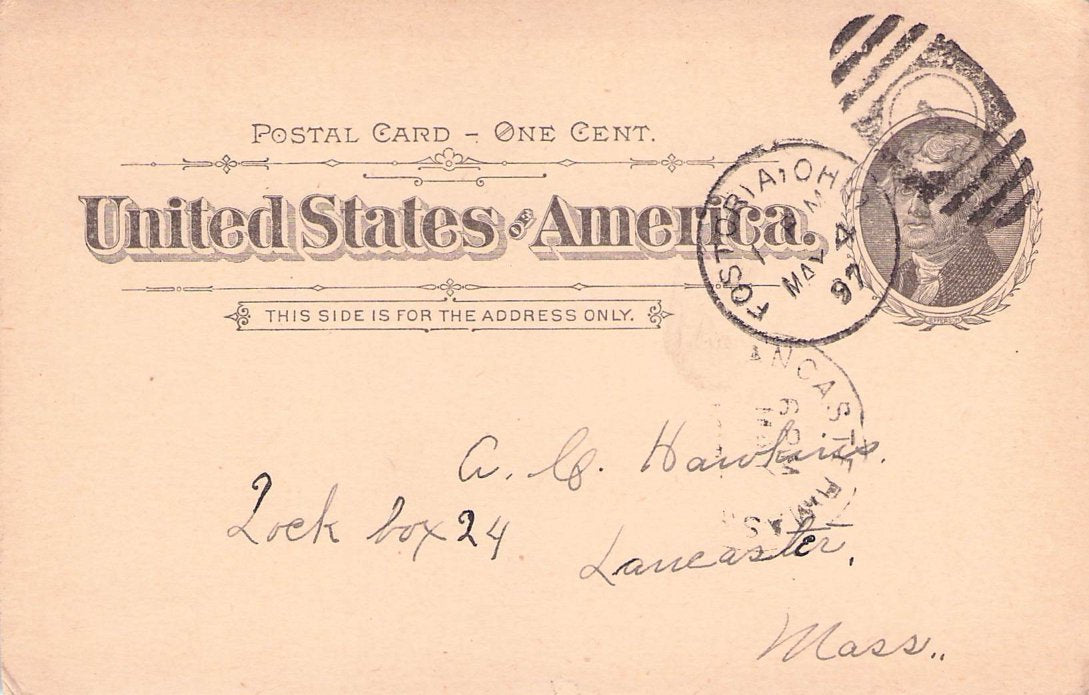 POSTAL CARD – ONE CENT.
United States OF America.
THIS SIDE IS FOR THE ADDRESS ONLY.
FOSTORIA, OHIO
MAY 4
97
JEFFERSON
LANCASTER MASS
A. C. Hawkins.
Lock box 24
Lancaster,
Mass.